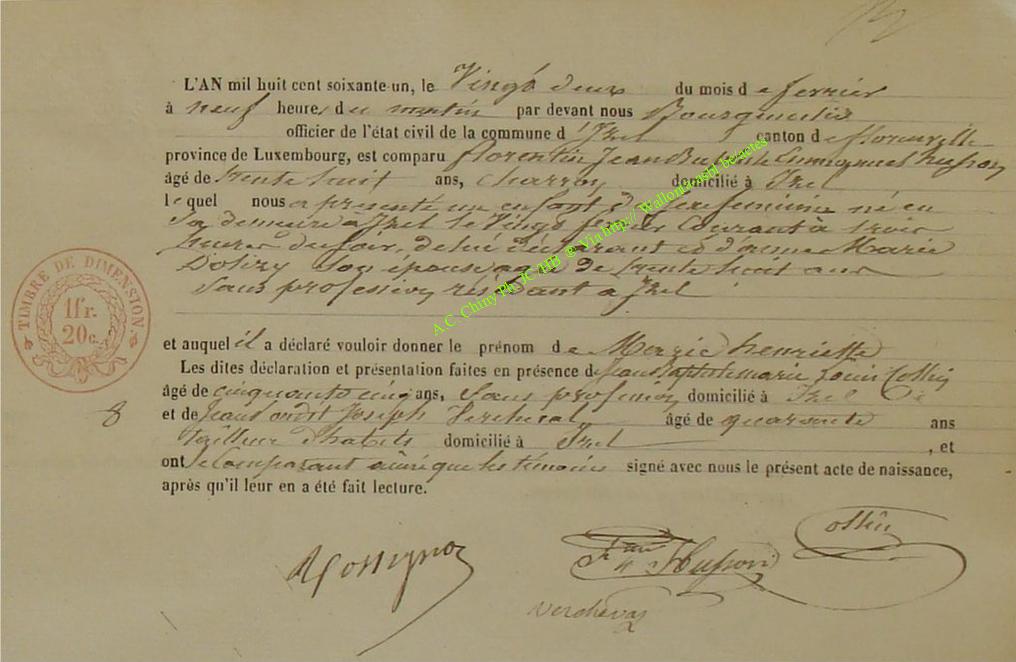 L'AN mil huit cent soixante-un, le Vingt deux du mois de fevrier
à neuf heures du matin par devant nous
officier de l'état civil de la commune d'Izel canton de florenville
province de Luxembourg, est comparu florentin Jean Emmanuel husson
âgé de trente huit ans, charron domicilié à Izel
lequel nous a présenté un enfant du sexe feminin né en
Sa demeure à Izel le Vingt fevrier Courant à trois
heures du soir, de lui déclarant et d'anne Marie
son épouse agée de trente huit ans
Sans profession résidant a Izel
et auquel il a déclaré vouloir donner le prénom de Marie henriette
Les dites déclaration et présentation faites en présence de Jean Baptiste marie Louis Collin
âgé de cinquante cinq ans, Sans profession domicilié à Izel
et de Joseph âgé de quarante ans
tailleur d'habits domicilié à Izel , et
ont le Comparant ainsi que les témoins signé avec nous le présent acte de naissance,
après qu'il leur en a été fait lecture.
TIMBRE DE DIMENSION.
1fr.
20c.
8
A.C. Chiny Ph. JC HB @ Via http:// Wallonia asbl be/actes
Husson